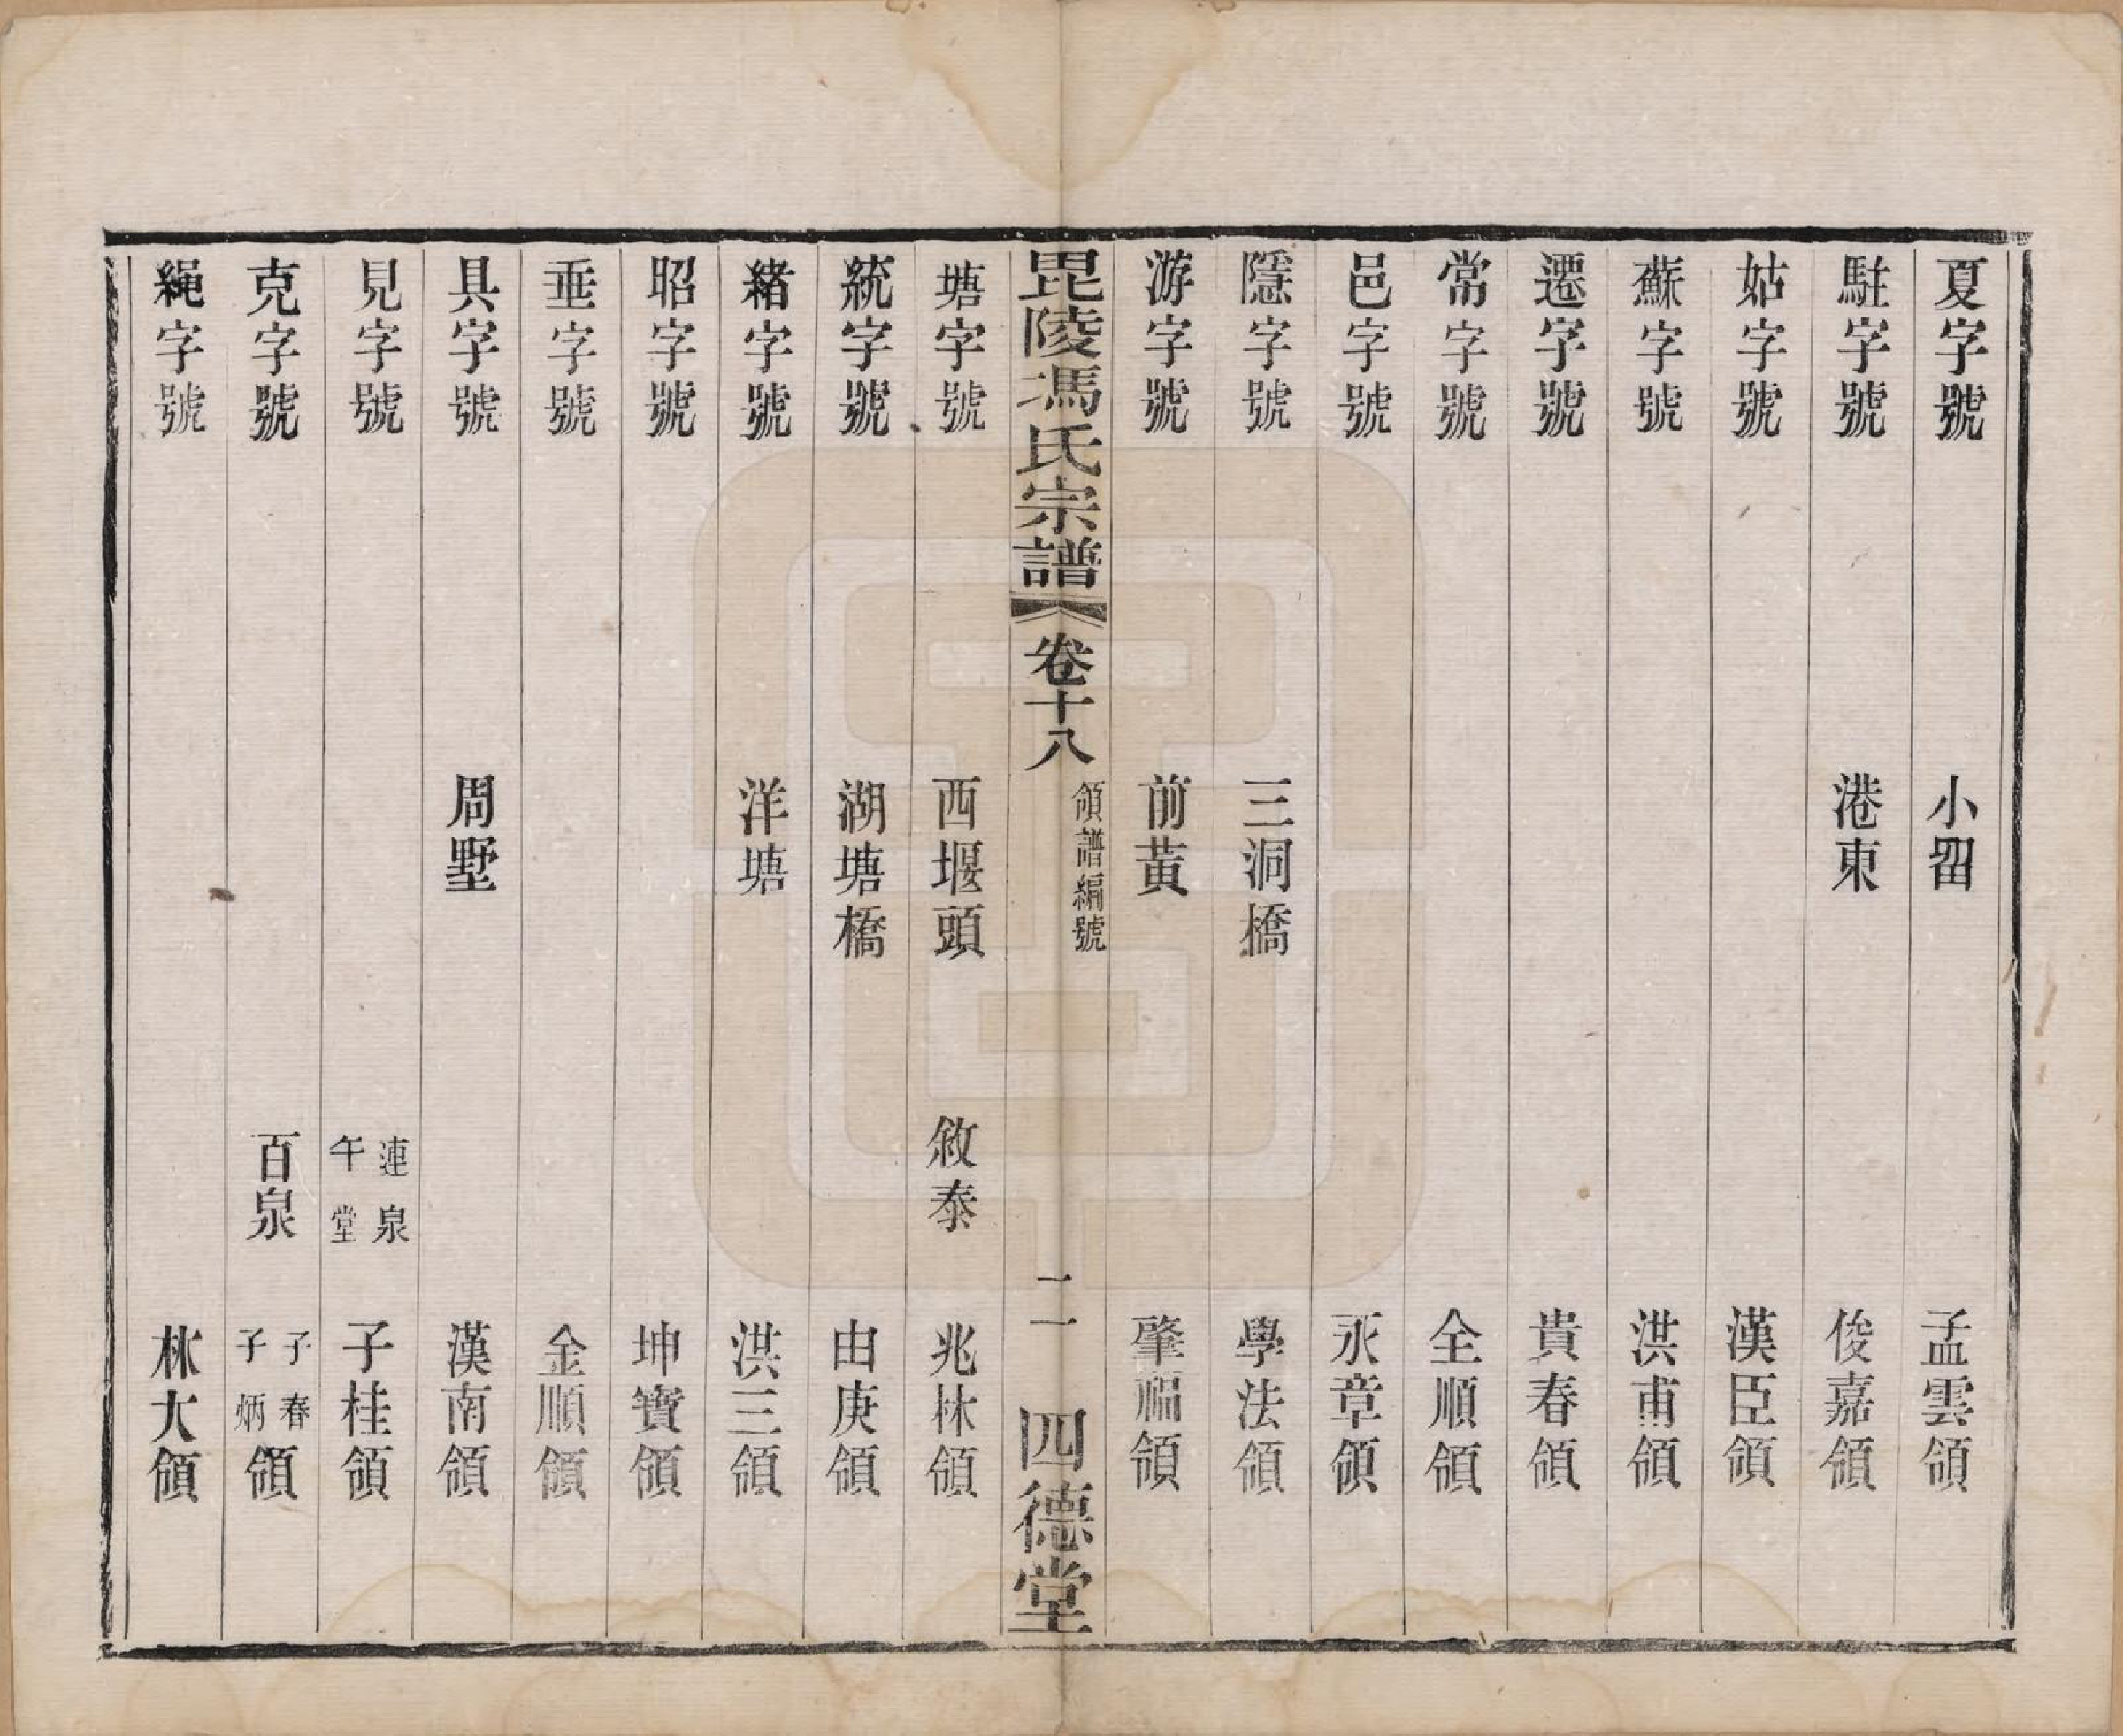 夏字號 小畱 孟雲領
駐字號 港東 俊嘉領
姑字號 漢臣領
蘇字號 洪甫領
遷字號 貴春領
常字號 全順領
邑字號 永章領
隱字號 三洞橋 學法領
游字號 前黃 肇福領
毘陵馮氏宗譜 卷十八 領譜編號 二 四德堂
塘字號 西堰頭 敘泰 兆林領
統字號 湖塘橋 由庚領
緒字號 洋塘 洪三領
昭字號 坤寶領
垂字號 金順領
具字號 周墅 漢南領
見字號 連泉 午堂 子桂領
克字號 百泉 子春 子炳 領
繩字號 林大領